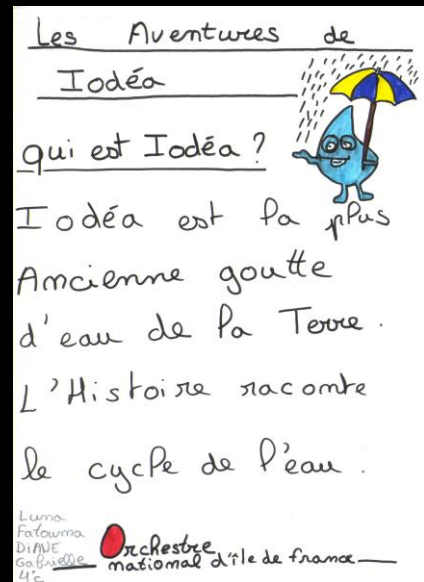 Les Aventures de
Iodéa
qui est Iodéa ?
Iodéa est la plus
Ancienne goutte
d'eau de la Terre.
L'Histoire raconte
le cycle de l'eau.
Luna
Fatouma
DIAVE
Gabrielle
4°c
Orchestre
national d'île de france